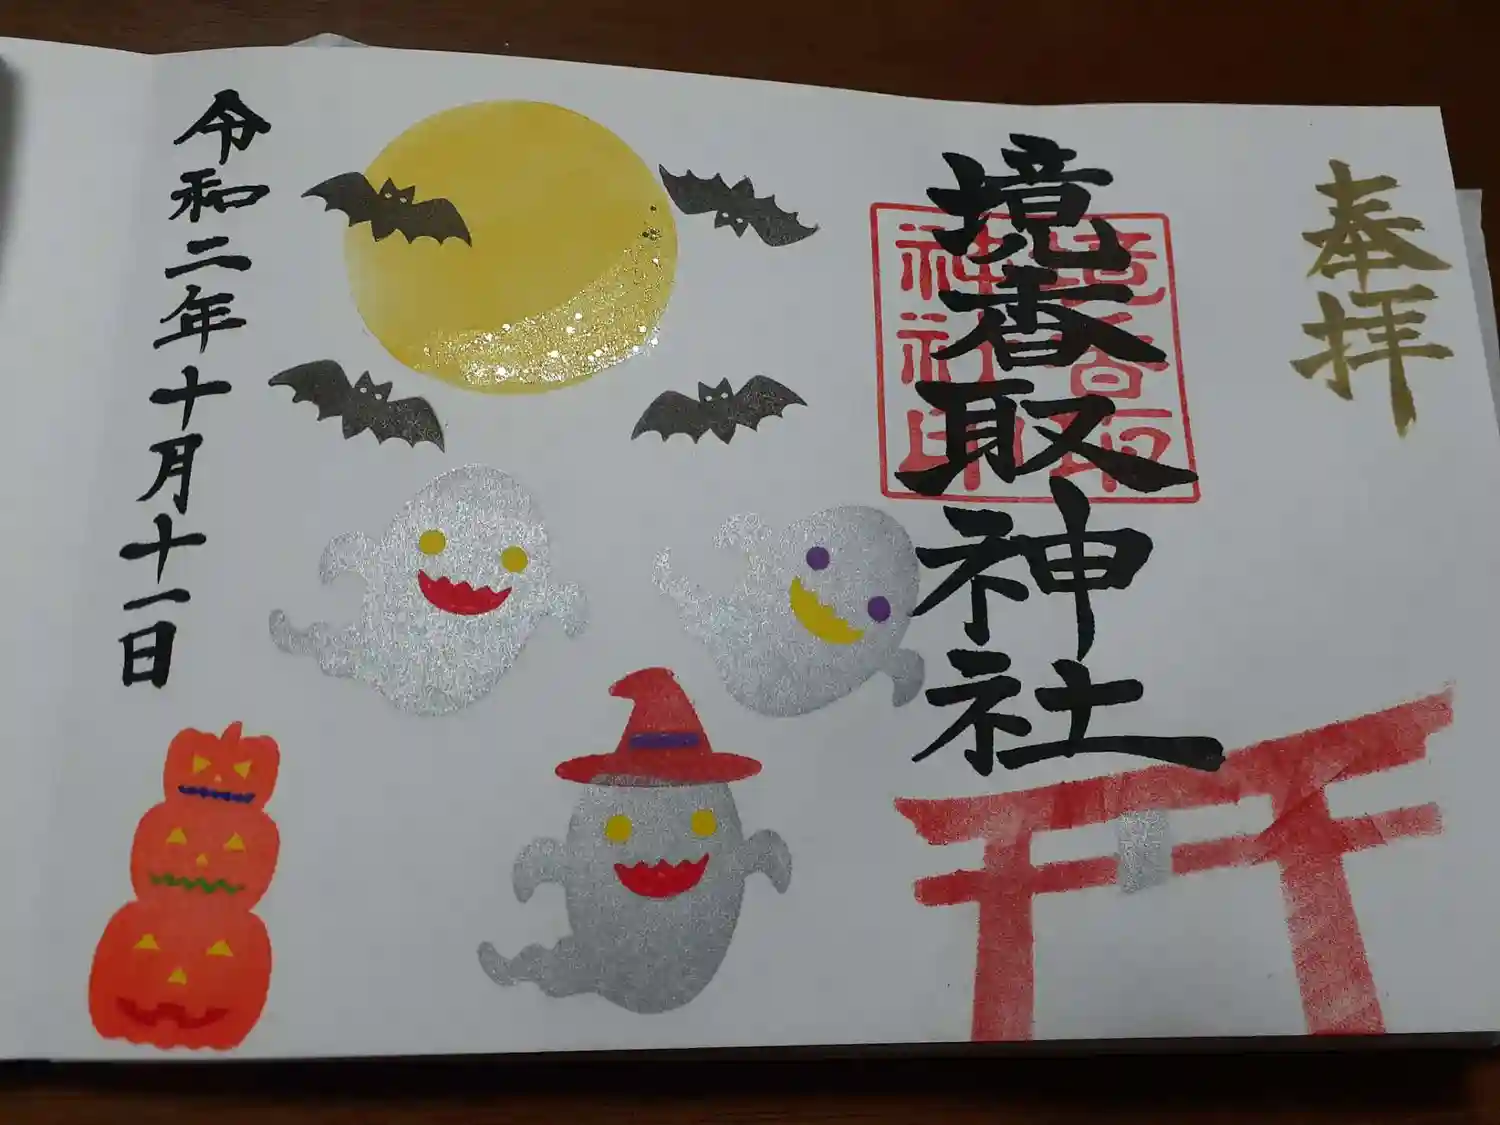 奉拝
境香取神社
境香取
神社印
令和二年十月十一日